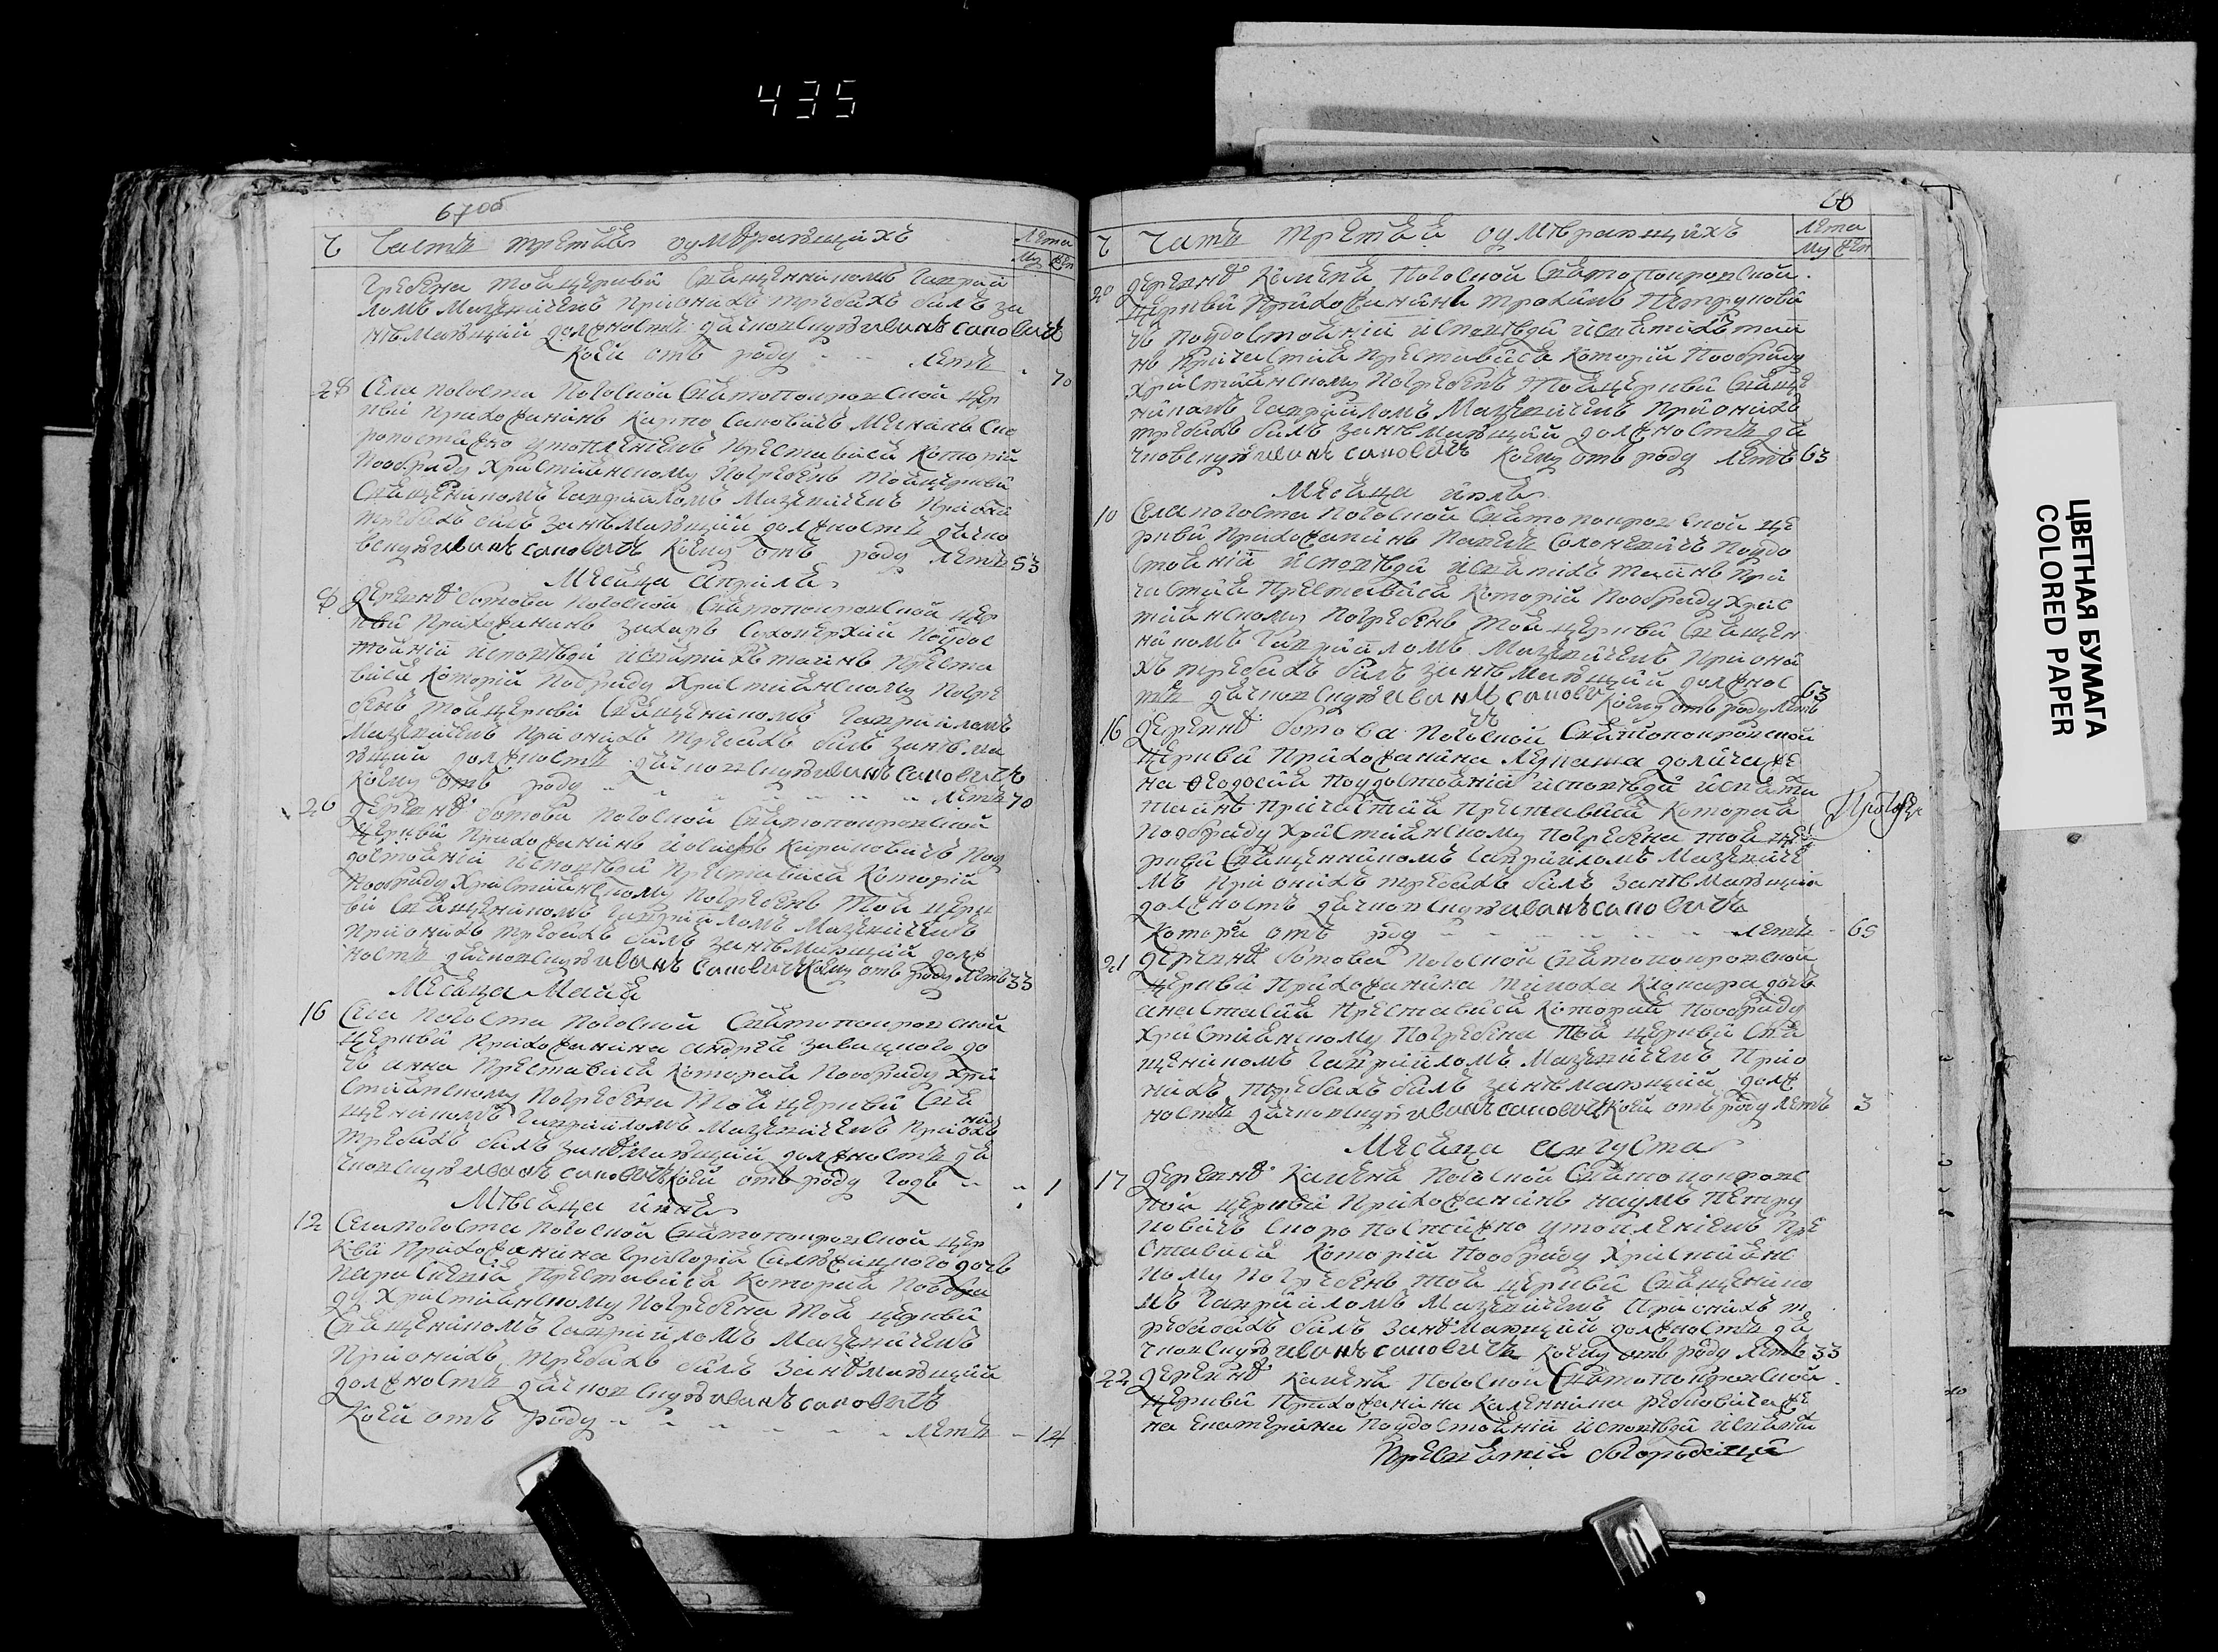 435
67 об
Ч Часть третьея оумѣрающихъ
Лета
Му Жен
гребена тоей церкви Священникомъ Гаврии
ломъ Мацевичемъ при онихъ требахъ билъ за
нѣмающий должность дячковскую иванъ саковичъ
коей отъ роду летъ 70
28 Села Погоста Погоской Святопокровской цер
кви прихожанинъ Карпо Сановичъ Мянанъ ско
ропостижно утоплениемъ преставися которий
пообряду християнскому погребенъ тоей церкви
Священикомъ Гавриіломъ Мацевичемъ при онй
требахъ билъ занѣмающий должность дячко
вскую иванъ саковичъ коему отъ роду летъ 53
Месяца априля
8 деревнѣБотова Погоской Святопокровской цер
кви прихожанинъ Захаръ Суховерхий поудос
тоянии исповѣди исвятихъ таинъ преста
вися которий пообряду християнскому погре
бенъ тоей церкви Священикомъ Гавриіломъ
Мацевичемъ при онихъ требахъ билъ занѣма
ющий должность дячковскую иванъ саковичъ
коему отъ роду летъ 70
26 деревнѣ Ботова Погоской Святопокровской
церкви прихожанинъ Иосифъ Кирановичъ поу
достоянии исповѣди преставися которий
пообряду християнскому погребенъ тоей церк
ви Священикомъ Гавриіломъ Мацевичемъ
при онихъ требахъ билъ занѣмающий долж
ность дячковскую иванъ саковичъ коему отъ роду летъ 33
Месяца Маия
16 Села Погоста Погоской Святопокровской
церкви прихожанина андрея Завацкого до
чъ анна преставися которая пообряду хри
стиянскому погребена тоей церкви Свя
щеникомъ Гавриіломъ Мацевичемъ при онихъ
требахъ билъ занѣмающий должность дя
чковскую иванъ саковичъ коей отъ роду годъ 1
Мѣсяца июня
12 Села Погоста Погоской Святопокровской цер
кви прихожанина Григория дочъ
Параскевия преставися которая пообря
ду християнскому погребена тоей церкви
Священикомъ Гавриіломъ Мацевичемъ
при онихъ требахъ билъ занѣмающий
должность дячковскую иванъ саковичъ
коей отъ роду летъ 14
68
Ч Чать третьея оумѣрающихъ
Лета
Му Жен
20 деревнѣ Каменя Погоской Святопокровской
церкви прихожанинъ Трохимъ Петрукови
чъ поудостоянии исповѣди исвятихъ таи
нъ причастия преставися которий пообряду
християнскому погребенъ тоей церкви Свяще
никомъ Гавриіломъ Мацевичемъ при онихъ
требахъ билъ занѣмающий должность дя
чковскую иванъ саковичъ коему отъ роду летъ 63
Месяца июля
10 Села Погоста Погоской Святопокровской це
ркви прихожанинъ Павелъ Солоневичъ поудо
стоянии исповѣди исвятихъ таинъ при
частия преставися которий пообряду хрис
тиянскому погребенъ тоей церкви Священ
никомъ Гавриіломъ Мацевичемъ при они
хъ требахъ билъ занѣмающий должнос
ть дячковскую иванъ саковичъ коему отъ роду летъ 63
16 деревнѣ Ботова Погоской Святопокровской
церкви прихожанина Лукаша же
на Феодосия поудостоянии исповѣди исвяти
таинъ причастия преставися которая
пообряду християнскому погребена тоей це
ркви Священникомъ Гавриіломъ Мацевиче
мъ при онихъ требахъ билъ занѣмающий
должность дячковскую иванъ саковичъ
которой отъ роду летъ 65
21 деревнѣ Ботова Погоской Святопокровской
церкви прихожанина дочъ
анастасия преставися которая пообряду
християнскому погребена тоей церкви Свя
щеникомъ Гавриіломъ Мацевичемъ при о
нихъ требахъ билъ занѣмающий долж
ность дячковскую иванъ саковичъ коей отъ роду летъ 3
Месяца августа
17 деревнѣ Каменя Погоской Святопокровс
кой церкви прихожанинъ Наумъ Петру
ковичъ скоропостижно утоплениемъ пре
ставися которий пообряду християнс
кому погребенъ тоей церкви Священико
мъ Гавриіломъ Мацевичемъ при онихъ т
ребахъ билъ занѣмающий должность дя
чковскую иванъ саковичъ коему отъ роду летъ 33
22 деревнѣ Каменя Погоской Святопокровской
церкви прихожанина Калениika Ребковича же
на Екатерина поудостоянии исповѣди исвяти
Пресвятия богородици
ЦВЕТНАЯ БУМАГА
COLORED PAPER